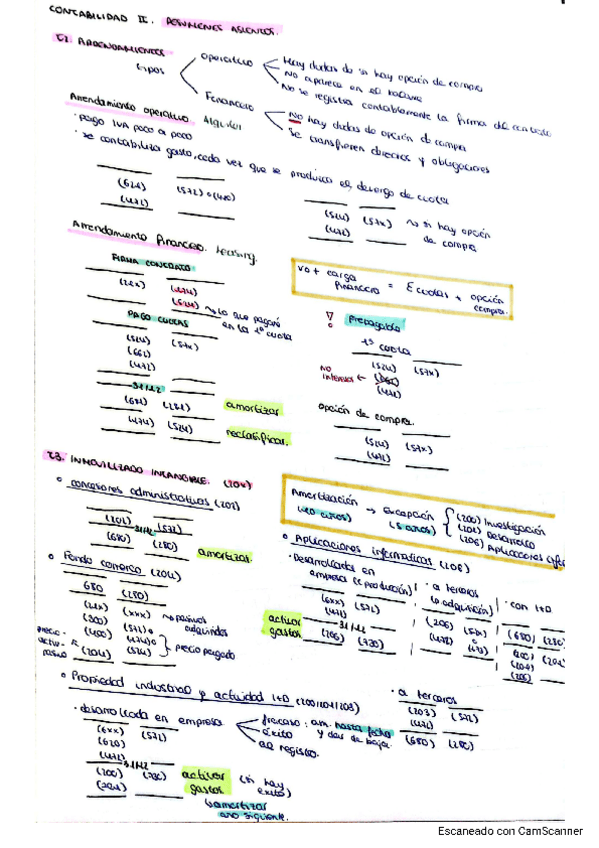 CONTABILIDAD II. RESÚMENES ASIENTOS.
T.1 ARRENDAMIENTOS
tipos
operativo
Hay dudas de si hay opción de compra
No aparece en el balance
No se registra contablemente la firma del contrato
Financiero
No hay dudas de opción de compra
Se transfieren derechos y obligaciones
Arrendamiento operativo. Alquiler
· pago IVA poco a poco
· se contabiliza gasto, cada vez que se produzca el devengo de cuota
(621)
(472)
(572) o (410)
(524) (57x) si hay opción
(472) de compra
Arrendamiento financiero. Leasing.
FIRMA CONTRATO
(21x) (174)
(524) lo que pagaré
en la 1ª cuota
PAGO CUOTAS
(524) (57x)
(662)
(472)
31/12
(681) (281) amortizar
(174) (524) reclasificar.
vo + carga financiera = Σ cuotas + opción compra.
! prepagable
1ª cuota
(524) (57x)
NO intereses (662)
(472)
opción de compra.
(524) (57x)
(472)
T3. INMOVILIZADO INTANGIBLE. (20x)
○ concesiones administrativas (202)
(202) (572)
31/12
(680) (280) amortizar
Amortización → Excepción
(10 años) (5 años)
(200) Investigación
(201) Desarrollo
(206) Aplicaciones
○ Fondo comercio (204)
680 (280)
(21x) (xxx) pasivos
(300) adquiridos
(430) (572) o
(174) o
(204) (524) precio pagado
precio - activo - pasivo
○ Aplicaciones informáticas (206)
· Desarrolladas en
empresa (c producción)
(6xx) (572)
(472)
31/12
(206) (730)
activar gastos
· a terceros
(p adquisición)
(206) (57x)
(472)
· con I+D
(680) (280)
(200) (201)
(206)
○ Propiedad industrial y actividad I+D (200/201/203)
· desarrollada en empresa
fracaso: am. hasta fecha
y das de baja.
éxito
al registro.
(6xx) (572)
(620)
(472)
31/12
(200) (730) activar (si hay
(201) gastos éxito)
amortizar
año siguiente.
· a terceros
(203) (572)
(472)
(680) (280)
Escaneado con CamScanner